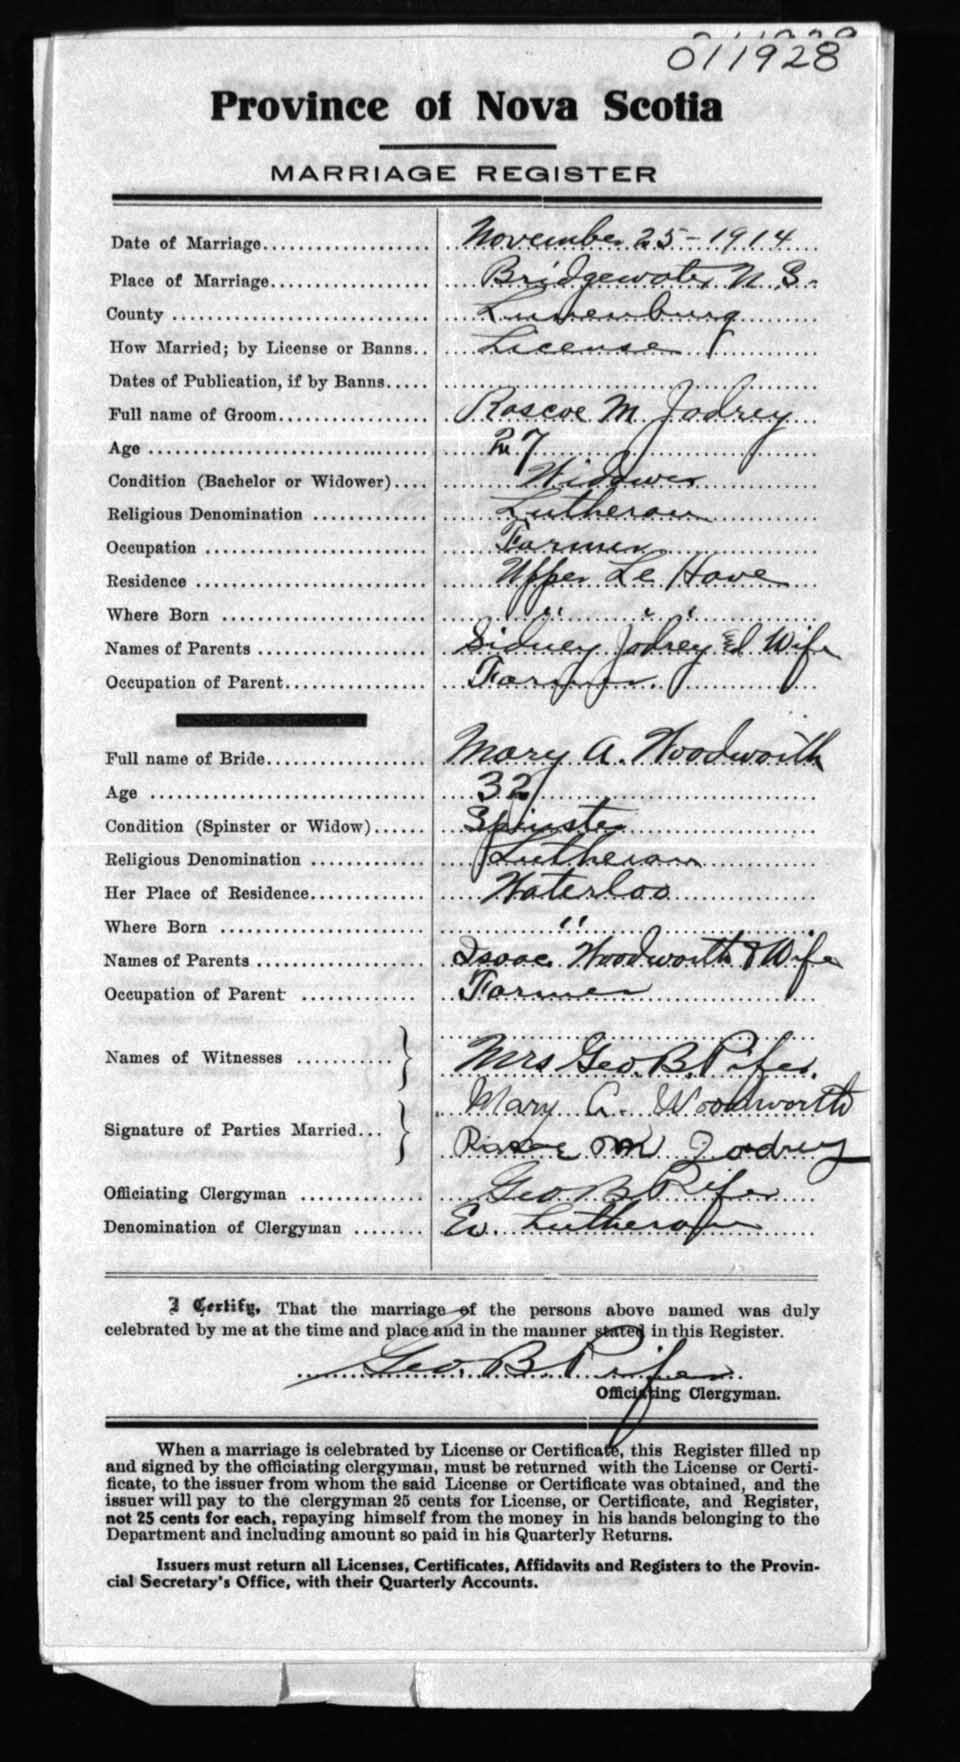 011928
Province of Nova Scotia
MARRIAGE REGISTER
Date of Marriage.................. November 25-1914
Place of Marriage.................. Bridgewater N.S.
County .................. Lunenburg
How Married; by License or Banns.. License
Dates of Publication, if by Banns.....
Full name of Groom.................. Roscoe M Jodrey
Age .................. 27
Condition (Bachelor or Widower).... Widower
Religious Denomination ............ Lutheran
Occupation .................. Farmer
Residence .................. Upper Le Have
Where Born .................. " " "
Names of Parents .................. Sidney Jodrey & Wife
Occupation of Parent............... Farmer.
Full name of Bride.................. Mary A. Woodworth
Age .................. 32
Condition (Spinster or Widow)...... Spinster
Religious Denomination ............ Lutheran
Her Place of Residence............. Waterloo
Where Born .................. "
Names of Parents .................. Isaac Woodworth & Wife
Occupation of Parent ............ Farmer
Names of Witnesses .......... } Mrs Geo. B. Pifer.
Mary A. Woodworth
Signature of Parties Married... } Roscoe M Jodrey
Officiating Clergyman ............ Geo B Pifer
Denomination of Clergyman ........ Ev. Lutheran
I Certify, That the marriage of the persons above named was duly
celebrated by me at the time and place and in the manner stated in this Register.
Geo. B. Pifer
Officiating Clergyman.
When a marriage is celebrated by License or Certificate, this Register filled up
and signed by the officiating clergyman, must be returned with the License or Certi-
ficate, to the issuer from whom the said License or Certificate was obtained, and the
issuer will pay to the clergyman 25 cents for License, or Certificate, and Register,
not 25 cents for each, repaying himself from the money in his hands belonging to the
Department and including amount so paid in his Quarterly Returns.
Issuers must return all Licenses, Certificates, Affidavits and Registers to the Provin-
cial Secretary's Office, with their Quarterly Accounts.